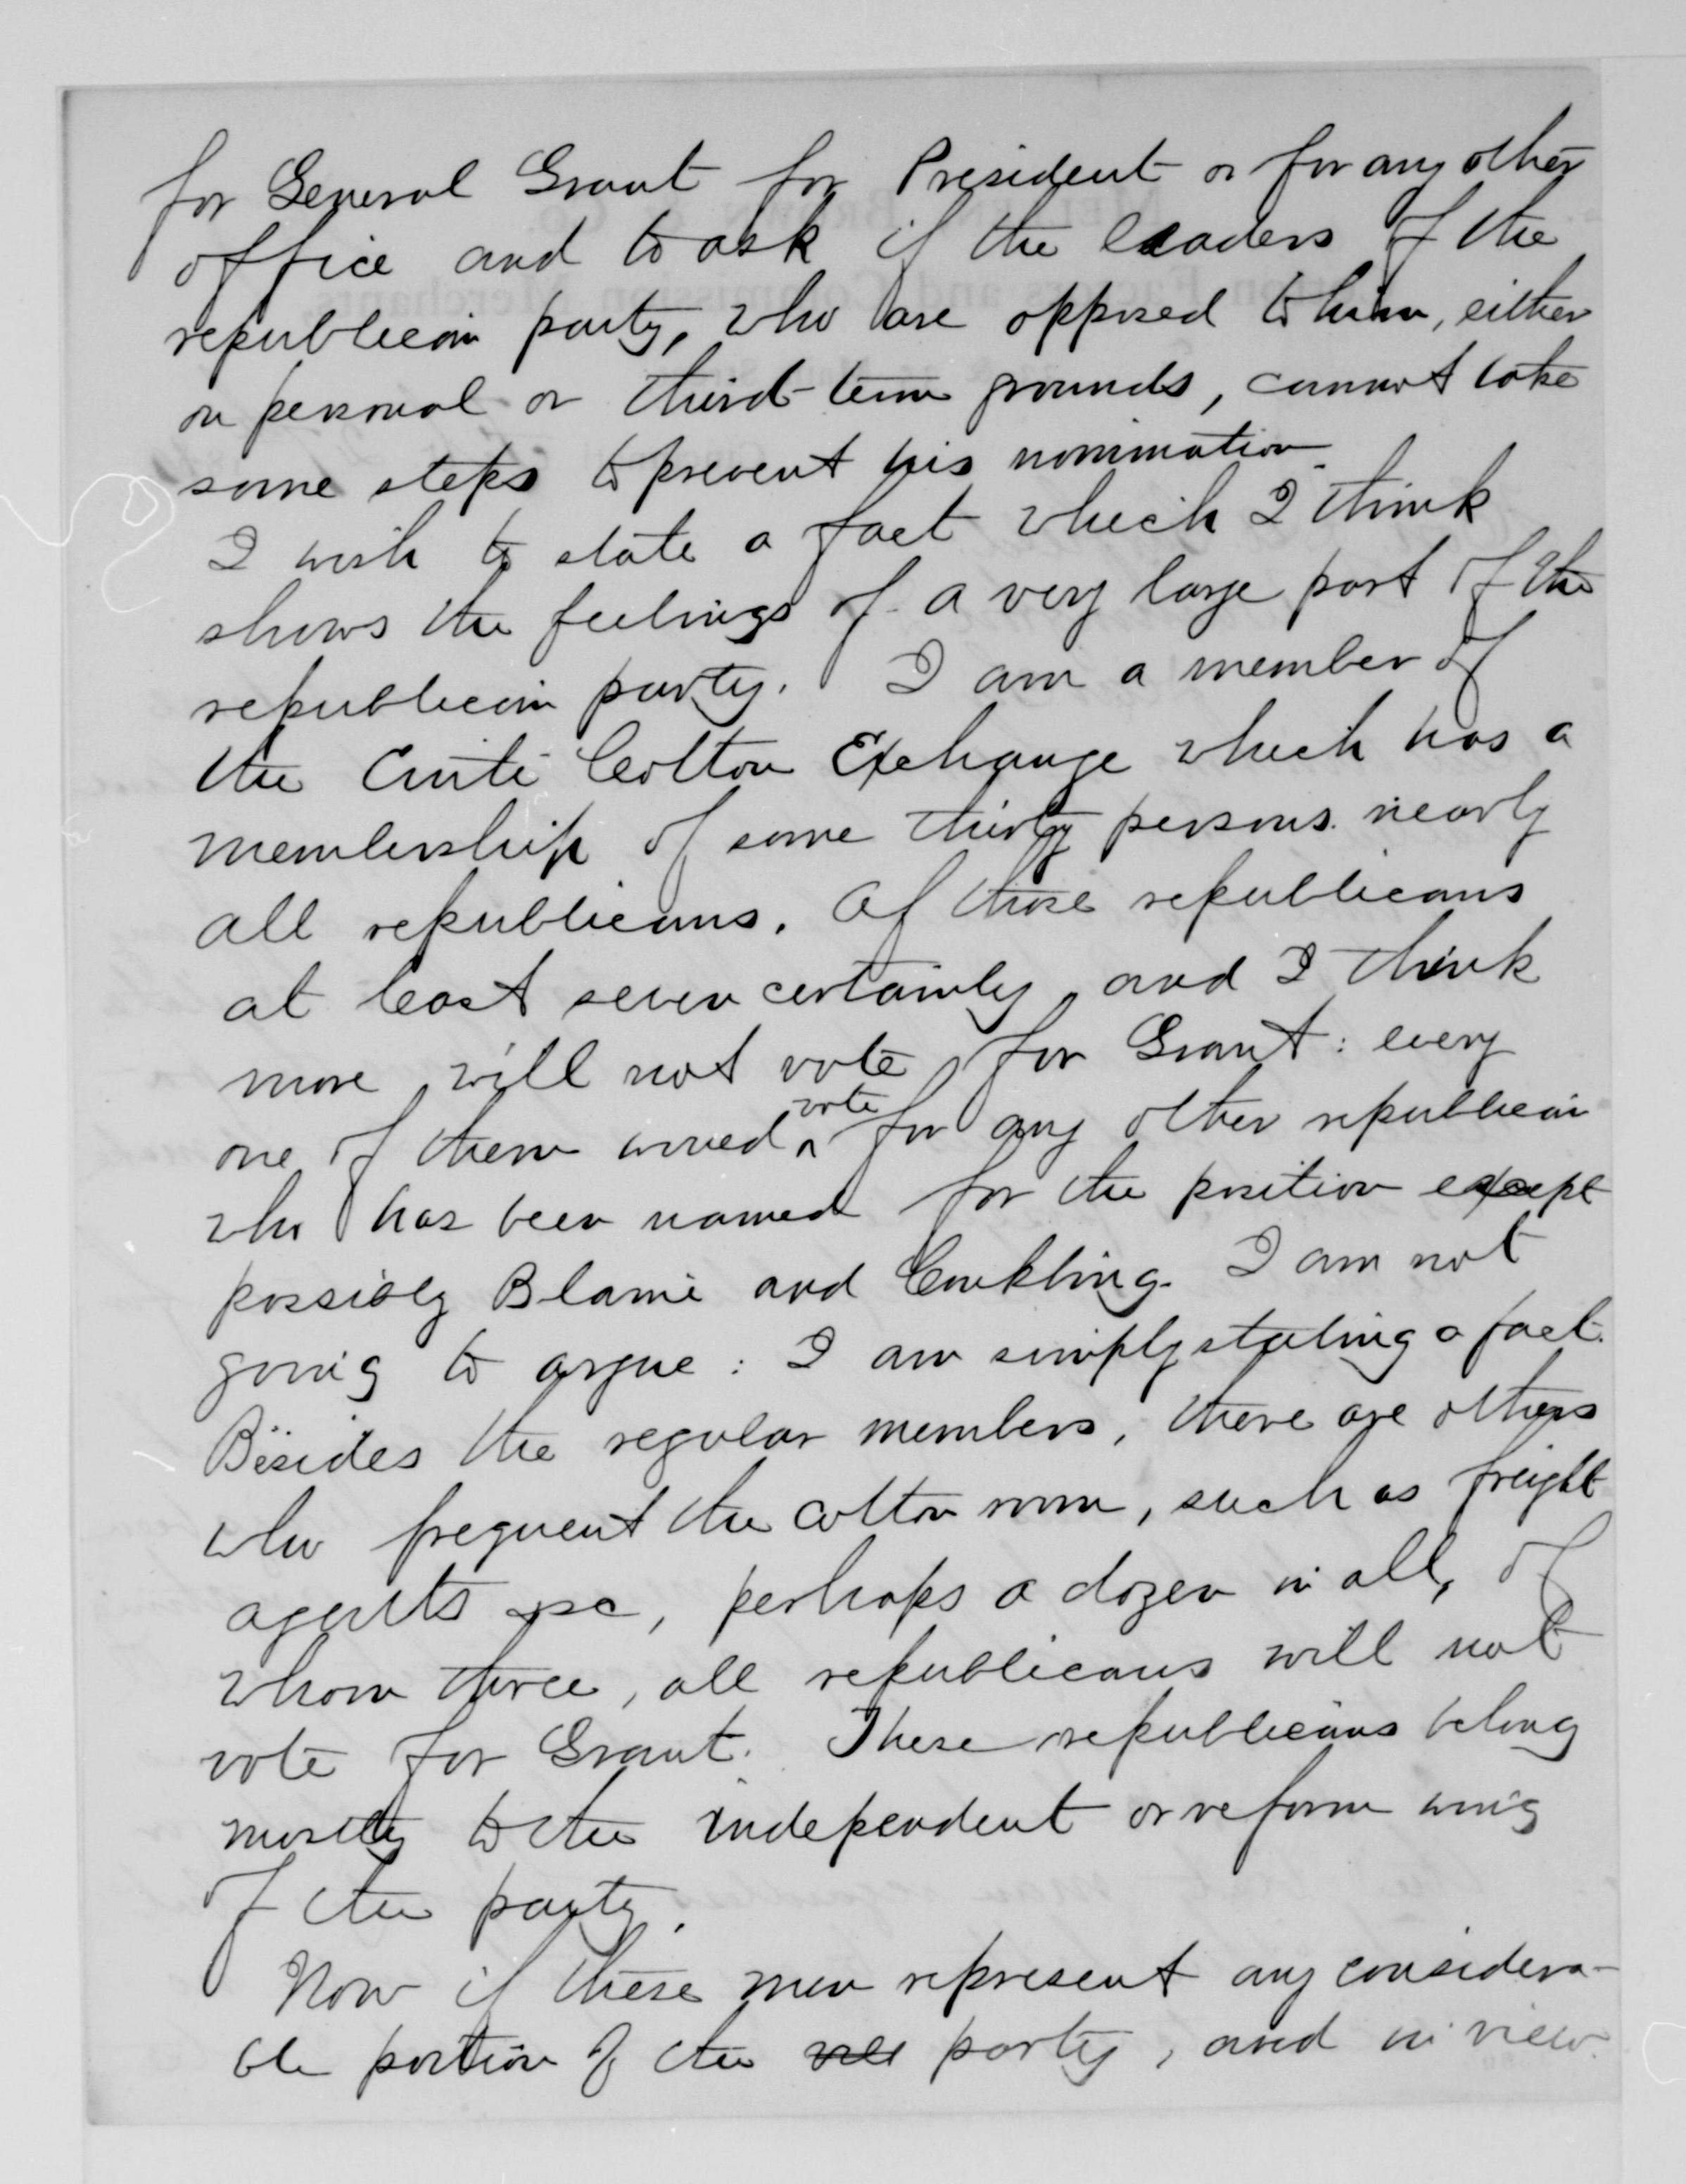 for General Grant for President or for any other
office and to ask if the leaders of the
republican party, who are opposed to him, either
on personal or third-term grounds, cannot take
some steps to prevent his nomination.
I wish to state a fact which I think
shows the feelings of a very large part of the
republican party. I am a member of
the Cotton Exchange which has a
membership of some thirty persons nearly
all republicans. Of those republicans
at least seven certainly, and I think
more will not vote for Grant: every
one of them would vote for any other republican
who has been named for the position except
possibly Blaine and Conkling. I am not
going to argue: I am simply stating a fact.
Besides the regular members, there are others
who frequent the cotton room, such as freight
agents &c, perhaps a dozen in all, of
whom three, all republicans will not
vote for Grant. These republicans belong
mostly to the independent or reform wing
of the party.
Now if these men represent any considera-
ble portion of the party, and in view